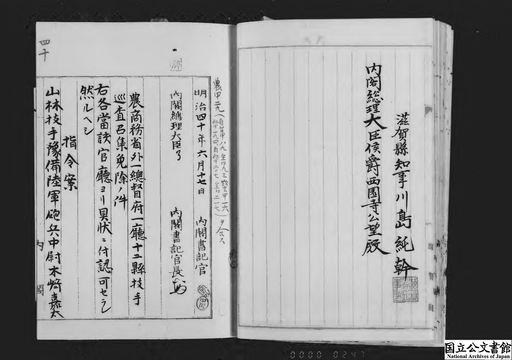 滋賀縣知事川島純幹
内閣總理大臣侯爵西園寺公望殿
明治四十年六月十七日
内閣書記官
内閣總理大臣
内閣書記官長
農商務省外一總督府一廳十二縣技手
巡査召集免除ノ件
右各當該官廳ヨリ具狀ニ付認可セラ
然ルヘシ
指令案
山林技手豫備陸軍砲兵中尉木
内閣
四十
0000 0247
国立公文書館
National Archives of Japan